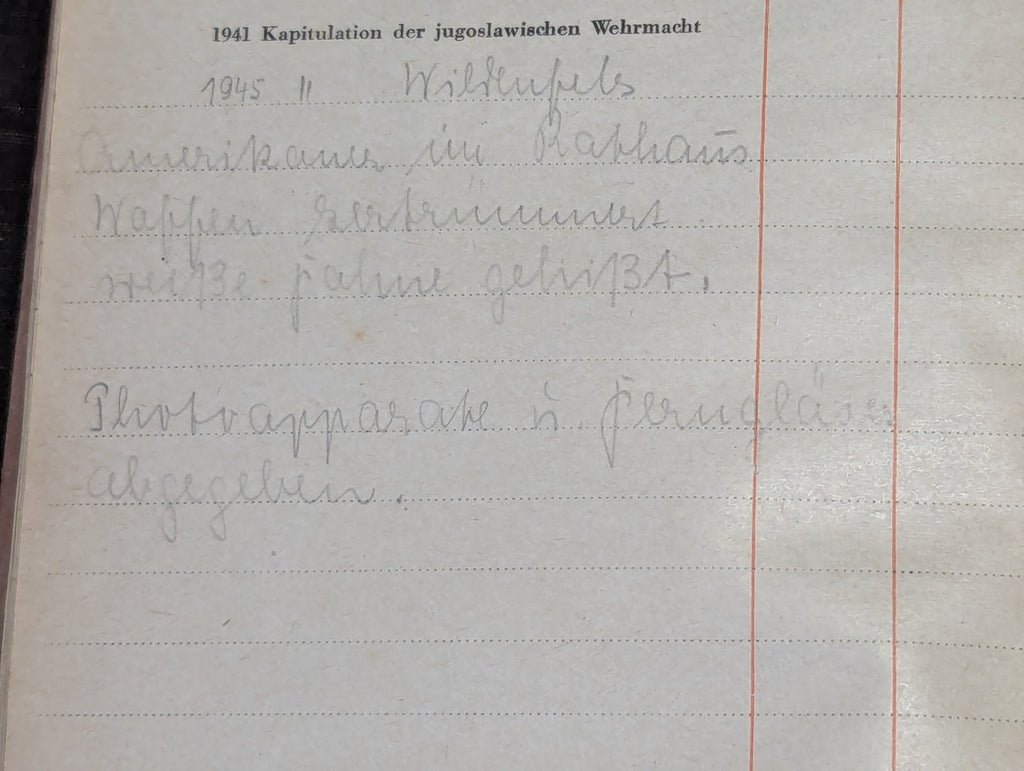 1941 Kapitulation der jugoslawischen Wehrmacht
1945 " Wildenfels
Amerikaner im Rathaus
Waffen zertrümmert
weiße Fahne gehißt.
Photoapparate u. Ferngläser
abgegeben.